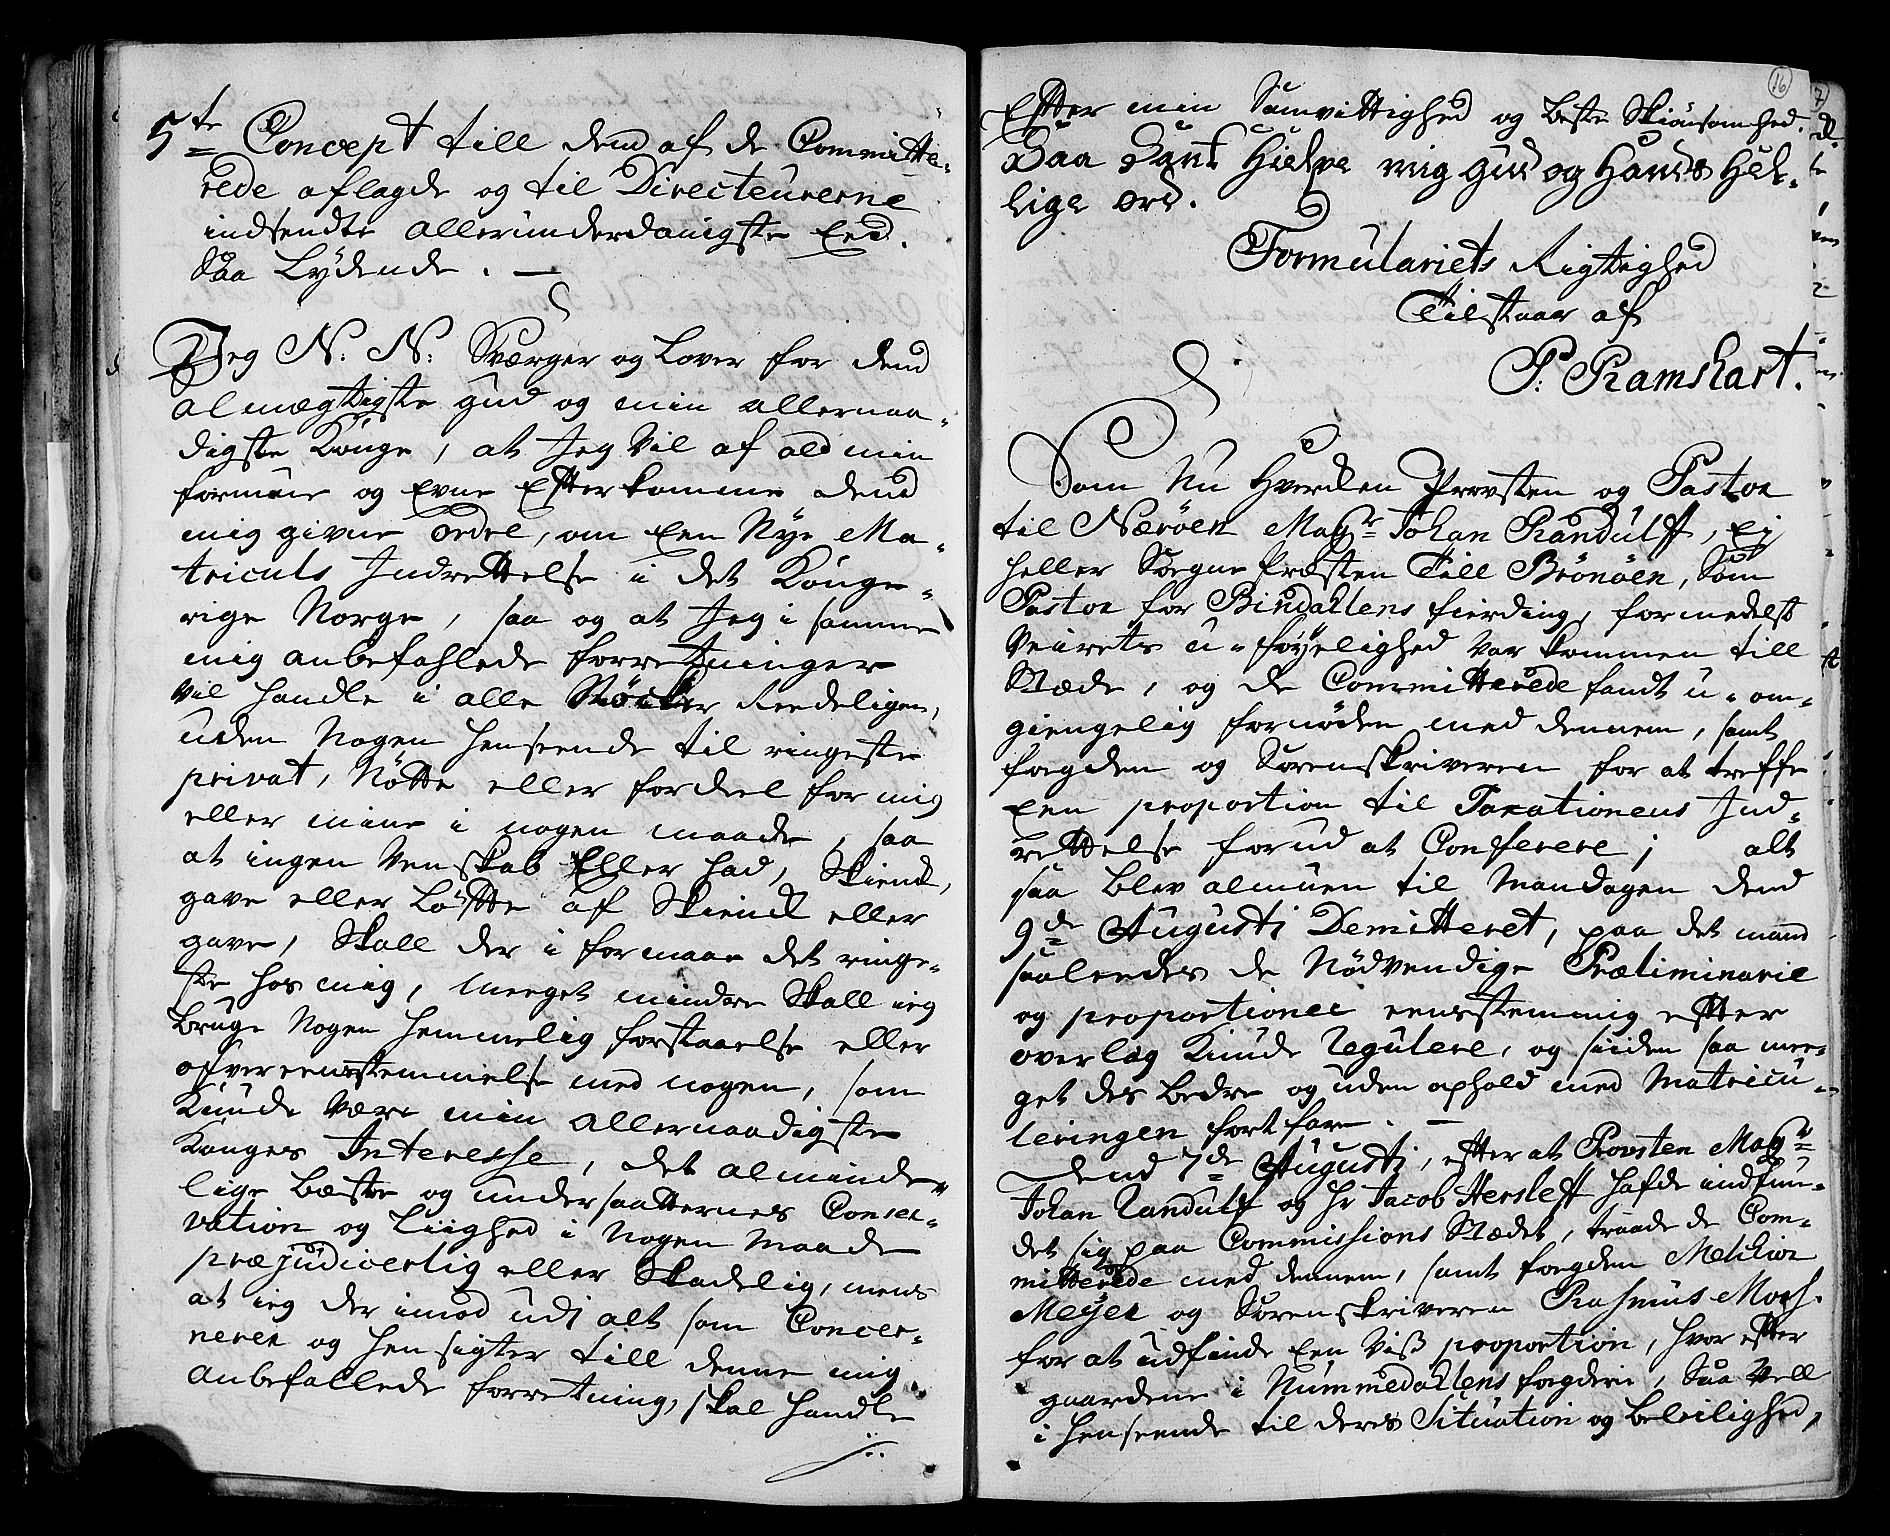 5te Concept till dend af de Committe-
rede aflagde og til Directeurerne
indsendte allerunderdanigste Eed.
Saa Lydende. —
Jeg N: N: Sværger og Lover for dend
almægtigste gud og min allernaa-
digste Konge, at Jeg vil af ald min
formue og Evne Efterkomme dend
mig givne Ordre, om Een Nye Ma-
triculs Indrettelse i det Konge-
rige Norge, saa og at Jeg i samme
mig anbefahlede forretninger
vil handle i alle Stöcker Reedeligen,
uden Nogen henseende til ringeste
privat, Nötte eller fordeel for mig
eller mine i nogen maade, saa
at ingen Venskab Eller had, Skienk,
gave eller Löffte af Skienk eller
gave, Skall der i formaae det ringe-
ste hos mig, meeget mindre Skall ieg
bruge Nogen hemmelig forstaaelse eller
ofvereensstemmelse med nogen, som
Kunde være min allernaadigste
Konges Interesse, det alminde-
lige bæste og undersaatternes Conser-
vation og Liighed i Nogen Maade
præjudicerlig eller Skadelig, mens
at ieg der imod udi alt som Concer-
nerer og hensigter till denne mig
anbefallede forretning, skal handle
Efter min Samvittighed og beste Skiønsomhed.
Saa Sant Hielpe mig Gud og Hands Hel-
lige Ord.
Formulariets Rigtighed
Tilstaar af
P: Ramshart.
Som Nu Hverken Provsten og Pastor
til Nærøen Magr Johan Randulff, Ej
heller Sogne Præsten Till Brönöen, Som
Pastor for Bindallens fierding, formedelst
Veirets u-föyelighed var kommen till
Stæde, og de Committerede fandt u-om-
giengelig fornøden med dennem, samt
fogden og Sorenskriveren for at treffe
Een proportion til Taxationens Ind-
rettelse forud at Conferere; alt
saa blev almuen til Mandagen dend
9de Augusti Demitteret, paa det mand
saaleedes de Nödvendige Præliminarie
og proportioner eensstemmig efter
overlæg Kunde Regulere, og siiden saa mee-
get des bedre og uden ophold med Matricu-
leringen fortfare. —
Dend 7de Augusti, efter at Provsten Magr
Johan Randulff og Hr Jacob Hersleff hafde indfun-
det sig paa Commissions Stædet, traade de Com-
mitterede med dennem, samt fogden Melchior
Meyer og Sorenskriveren Rasmus Mach.
for at udfinde Een viß proportion, hvor efter
gaardene i Nummedallens fogderie, Saa vell
i henseende til deres Situation og beleilighed,
16
7